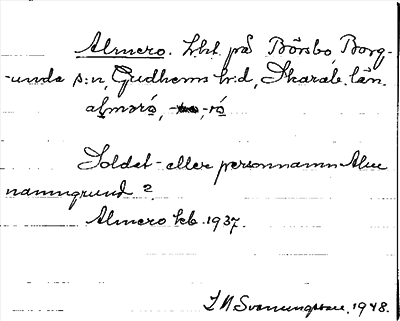 Almero. Lht. på Börsbo, Borg-
-unda s:n, Gudhems h:d, Skarab. län.
alməró, -ró
Soldat- eller personnamn Alm
namngrund?
Almero kb. 1937.
1948.